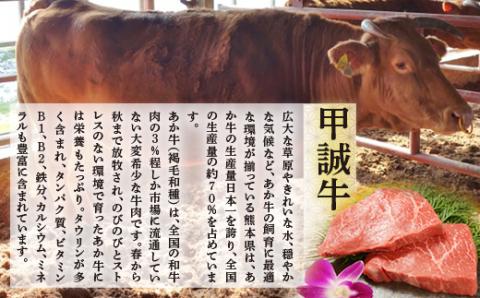 甲誠牛
広大な草原やきれいな水、穏やか
な気候など、あか牛の飼育に最適
な環境が揃っている熊本県は、あ
か牛の生産量日本一を誇り、全国
の生産量の約70%を占めていま
す。
あか牛（褐毛和種）は、全国の和牛
肉の3%程しか市場に流通してい
ない大変希少な牛肉です。春から
秋まで放牧され、のびのびとスト
レスのない環境で育ったあか牛に
は栄養もたっぷり。タウリンが多
く含まれ、タンパク質、ビタミン
B1、B2、鉄分、カルシウム、ミネ
ラルも豊富に含まれています。